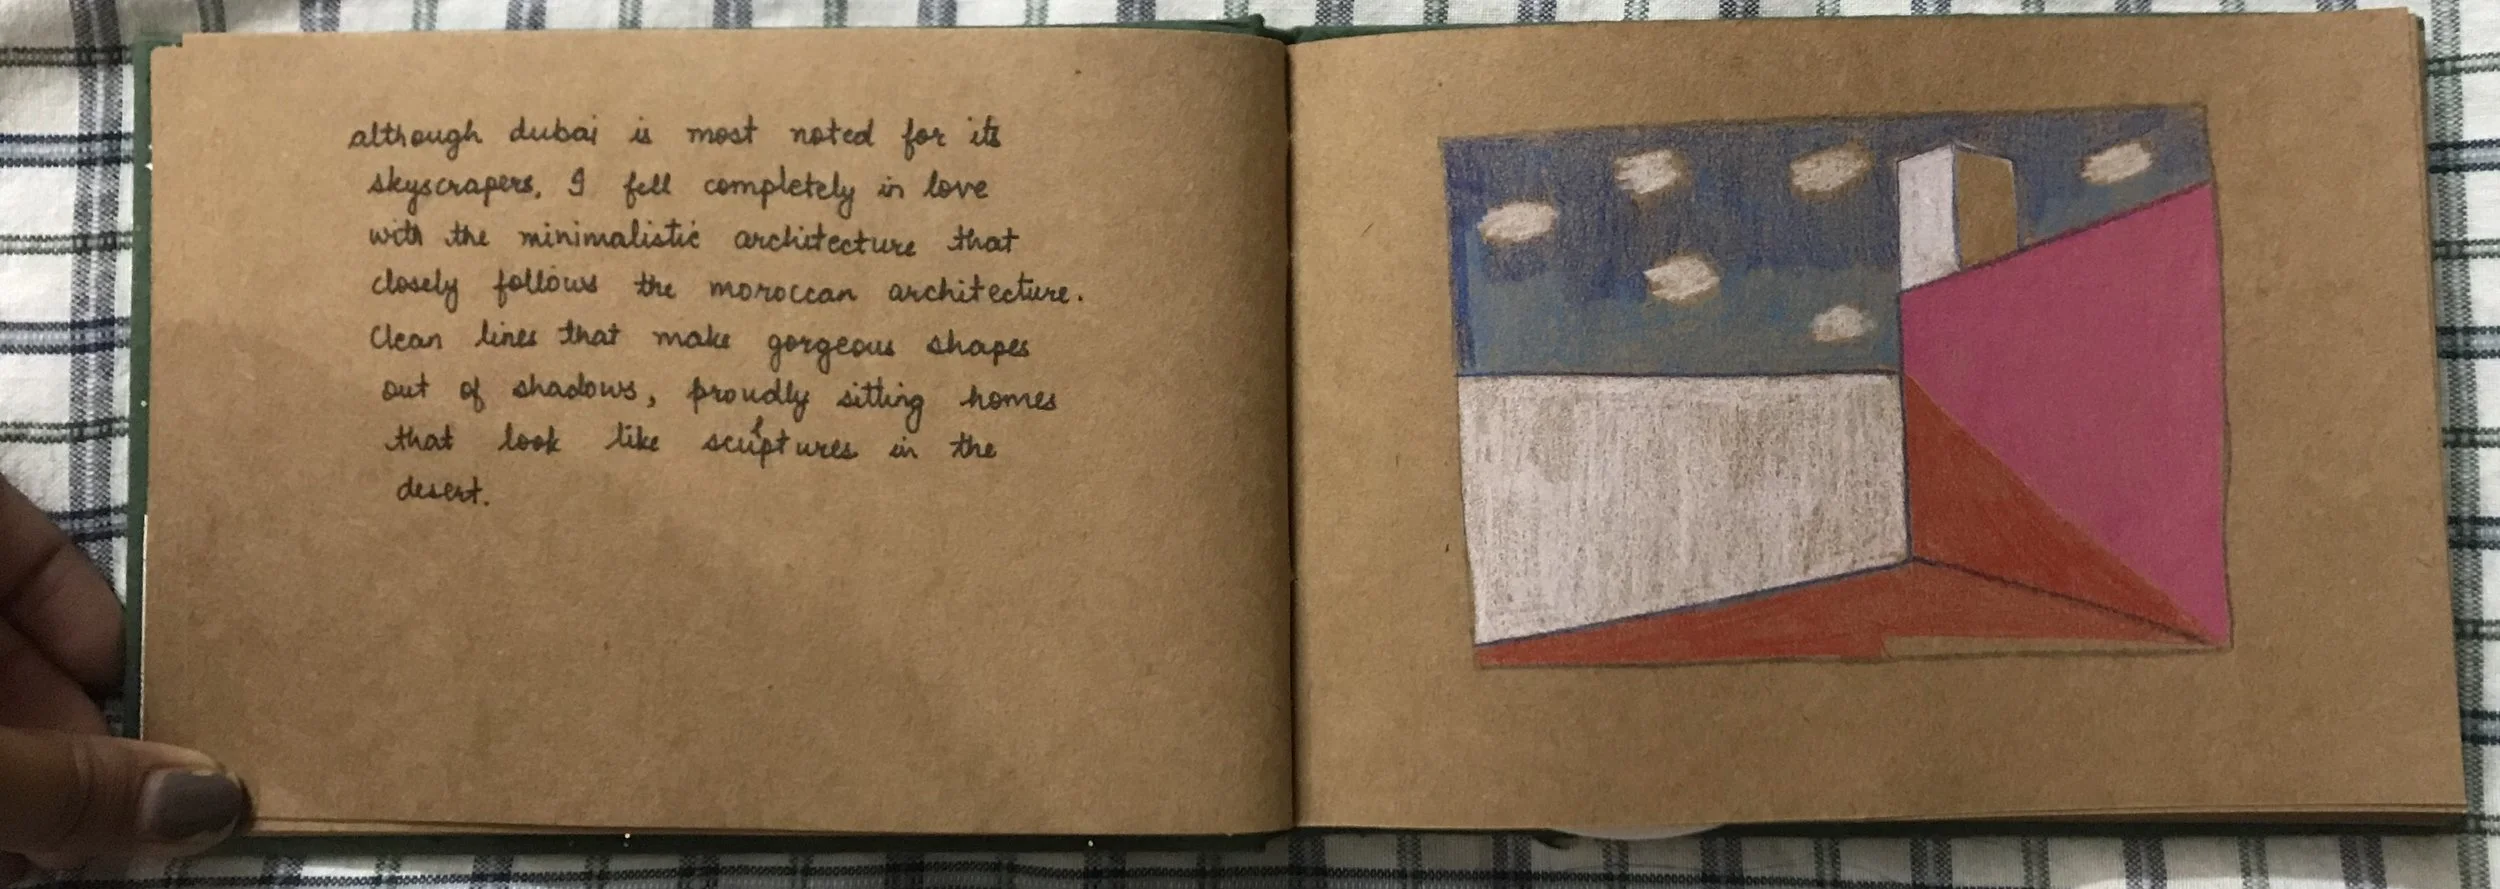 although dubai is most noted for its
skyscrapers, I fell completely in love
with the minimalistic architecture that
closely follows the moroccan architecture.
Clean lines that make gorgeous shapes
out of shadows, proudly sitting homes
that look like sculptures in the
desert.